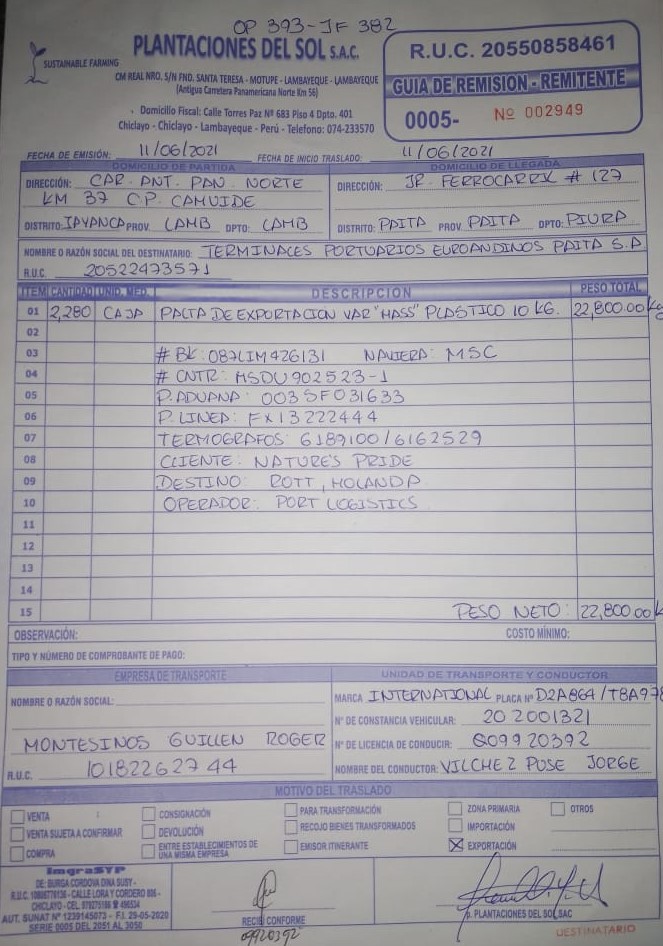 OP 393-JF 382
SUSTAINABLE FARMING
PLANTACIONES DEL SOL S.A.C.
CM REAL NRO. S/N FND. SANTA TERESA - MOTUPE - LAMBAYEQUE - LAMBAYEQUE
(Antigua Carretera Panamericana Norte Km 56)
Domicilio Fiscal: Calle Torres Paz Nº 683 Piso 4 Dpto. 401
Chiclayo - Chiclayo - Lambayeque - Perú - Telefono: 074-233570
R.U.C. 20550858461
GUIA DE REMISION - REMITENTE
0005- Nº 002949
FECHA DE EMISIÓN: 11/06/2021 FECHA DE INICIO TRASLADO: 11/06/2021
DOMICILIO DE PARTIDA DOMICILIO DE LLEGADA
DIRECCIÓN: CAR. ANT. PAN. NORTE DIRECCIÓN: JR. FERROCARRIL # 127
KM 37 C.P. CAHUIDE
DISTRITO: JAYANCA PROV. LAMB DPTO: LAMB DISTRITO: PAITA PROV. PAITA DPTO: PIURA
NOMBRE O RAZÓN SOCIAL DEL DESTINATARIO: TERMINALES PORTUARIOS EUROANDINOS PAITA S.A
R.U.C. 20522473571
ITEM CANTIDAD UNID. MED. DESCRIPCION PESO TOTAL
01 2,280 CAJA PALTA DE EXPORTACION VAR "HASS" PLASTICO 10 KG. 22,800.00 kg
02
03 # BK: 087LIM426131 NAVIERA: MSC
04 # CNTR: MSDU 902523-1
05 P. ADUANA: 003SF031633
06 P. LINEA: FX13222444
07 TERMOGRAFOS: 6189100/6162529
08 CLIENTE: NATURE'S PRIDE
09 DESTINO: ROTT, HOLANDA
10 OPERADOR: PORT LOGISTICS
11
12
13
14
15 PESO NETO: 22,800.00 k
OBSERVACIÓN: COSTO MÍNIMO:
TIPO Y NÚMERO DE COMPROBANTE DE PAGO:
EMPRESA DE TRANSPORTE UNIDAD DE TRANSPORTE Y CONDUCTOR
NOMBRE O RAZÓN SOCIAL: MARCA INTERNATIONAL PLACA Nº D2A864/T8A978
Nº DE CONSTANCIA VEHICULAR: 202001321
MONTESINOS GUILLEN ROGER Nº DE LICENCIA DE CONDUCIR: Q09920392
R.U.C. 10182262744 NOMBRE DEL CONDUCTOR: VILCHEZ PUSE JORGE
MOTIVO DEL TRASLADO
VENTA CONSIGNACIÓN PARA TRANSFORMACIÓN ZONA PRIMARIA OTROS
VENTA SUJETA A CONFIRMAR DEVOLUCIÓN RECOJO BIENES TRANSFORMADOS IMPORTACIÓN
COMPRA ENTRE ESTABLECIMIENTOS DE UNA MISMA EMPRESA EMISOR ITINERANTE EXPORTACIÓN
ImgraSYP
DE: BURGA CORDOVA DINA SUSY -
CALLE LORA Y CORDERO 806 -
AUT. SUNAT Nº 1239145073 - F.I. 29-05-2020
SERIE 0005 DEL 2051 AL 3050
RECIBI CONFORME
09920392
p. PLANTACIONES DEL SOL SAC
DESTINATARIO